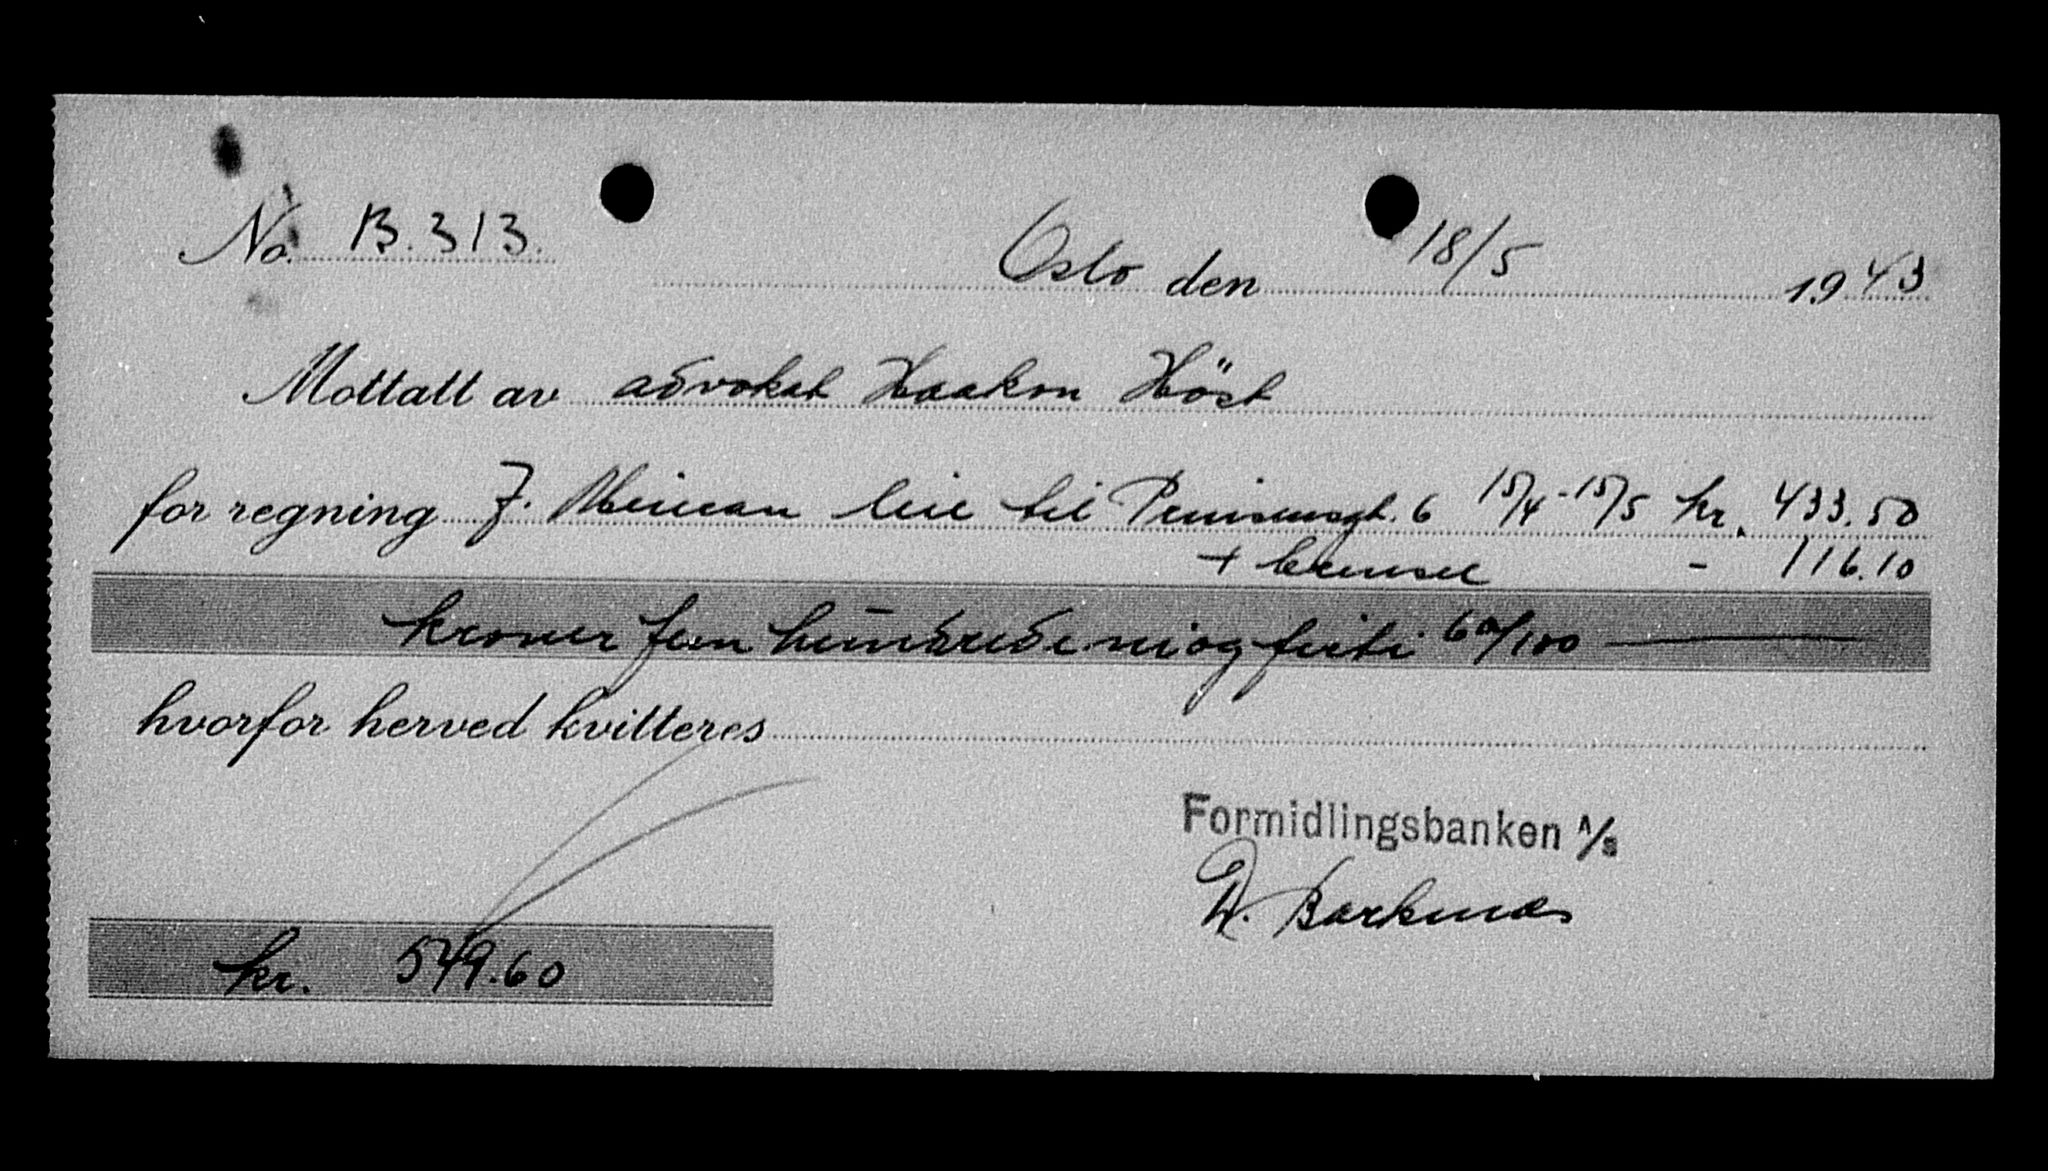 No. B.313.
Oslo den 18/5 1943
Mottatt av advokat Haakon Höst
for regning J. leie til 6 15/4-15/5 kr. 433.50
+ brensel - 116.10
kroner fem hundrede niogfirti 60/100
hvorfor herved kvitteres
Formidlingsbanken A/s
kr. 549.60